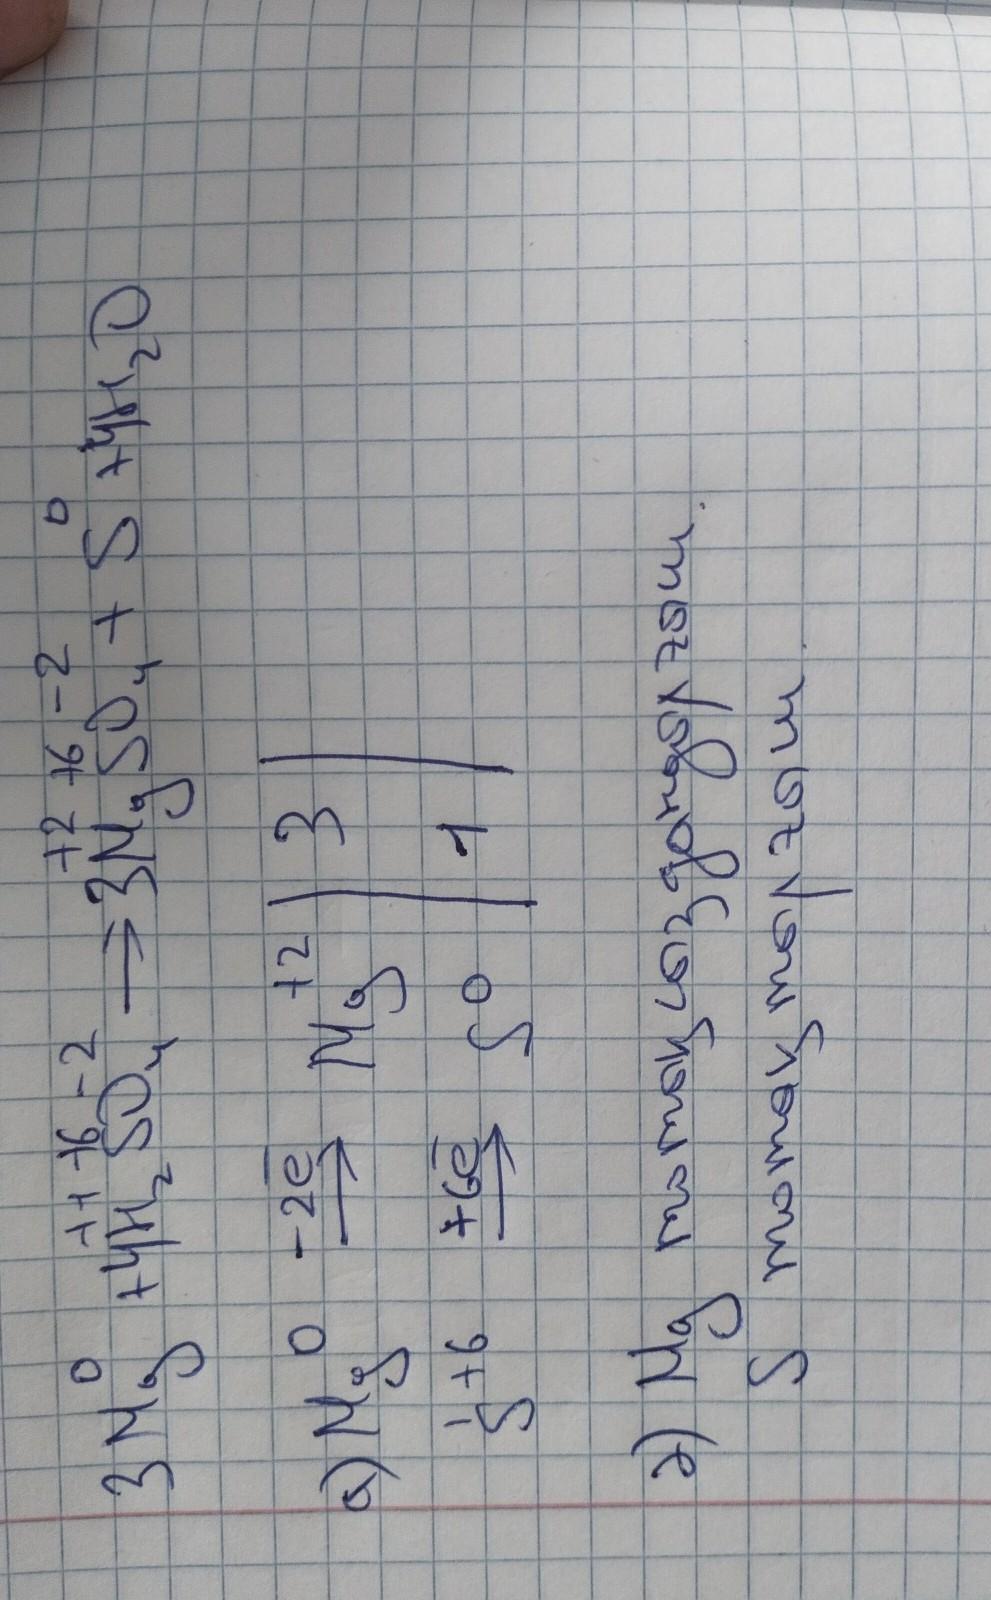 3Mg⁰ + 4H₂⁺¹S⁺⁶O₄⁻² → 3Mg⁺²S⁺⁶O₄⁻² + S⁰ + 4H₂O
а) Mg⁰ -2e̅→ Mg⁺² | 3 |
S⁺⁶ +6e̅→ S⁰ | 1 |
ә) Mg тотықсыздандырғыш.
S тотықтырғыш.